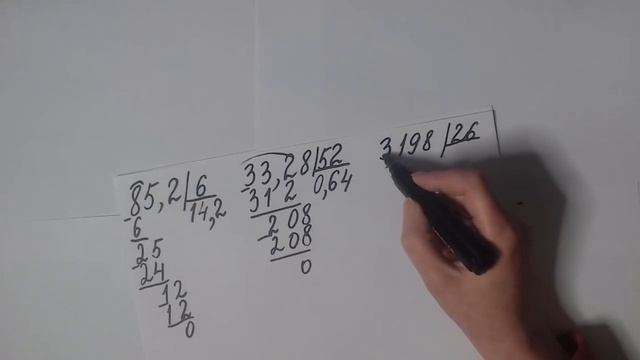 85,2 | 6
14,2
6
25
24
12
12
0
33,28 | 52
0,64
312
208
208
0
3198 | 26